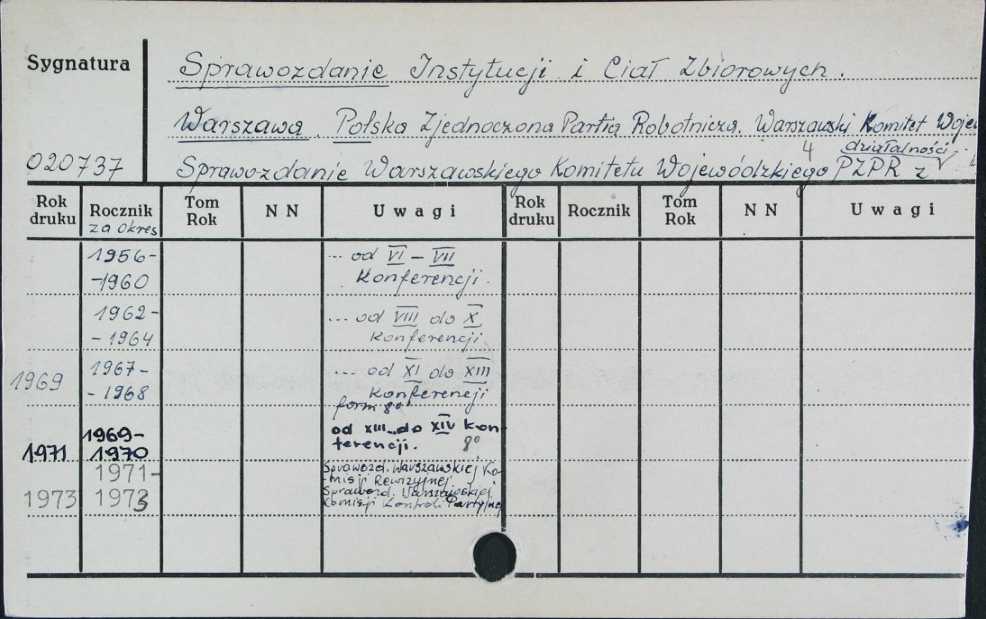 Sygnatura
Sprawozdanie Instytucji i Ciał Zbiorowych.
Warszawa. Polska Zjednoczona Partia Robotnicza. Warszawski Komitet Wojew
działalności
020737
Sprawozdanie Warszawskiego Komitetu Wojewódzkiego PZPR z
4
Rok druku Rocznik za okres Tom Rok NN Uwagi Rok druku Rocznik Tom Rok NN Uwagi
1956- ... od VI – VII
-1960 Konferencji.
1962- ... od VIII do X
- 1964 Konferencji
1967- ... od XI do XIII
1969 - 1968 Konferencji
form 8º
1969- od XIII do XIV Kon-
1971 1970 ferencji. 8º
1971- Sprawozd. Warszawskiej Ko-
misji Rewizyjnej
1973 1973 Sprawozd. Warszawskiej
Komisji Kontroli Partyjnej